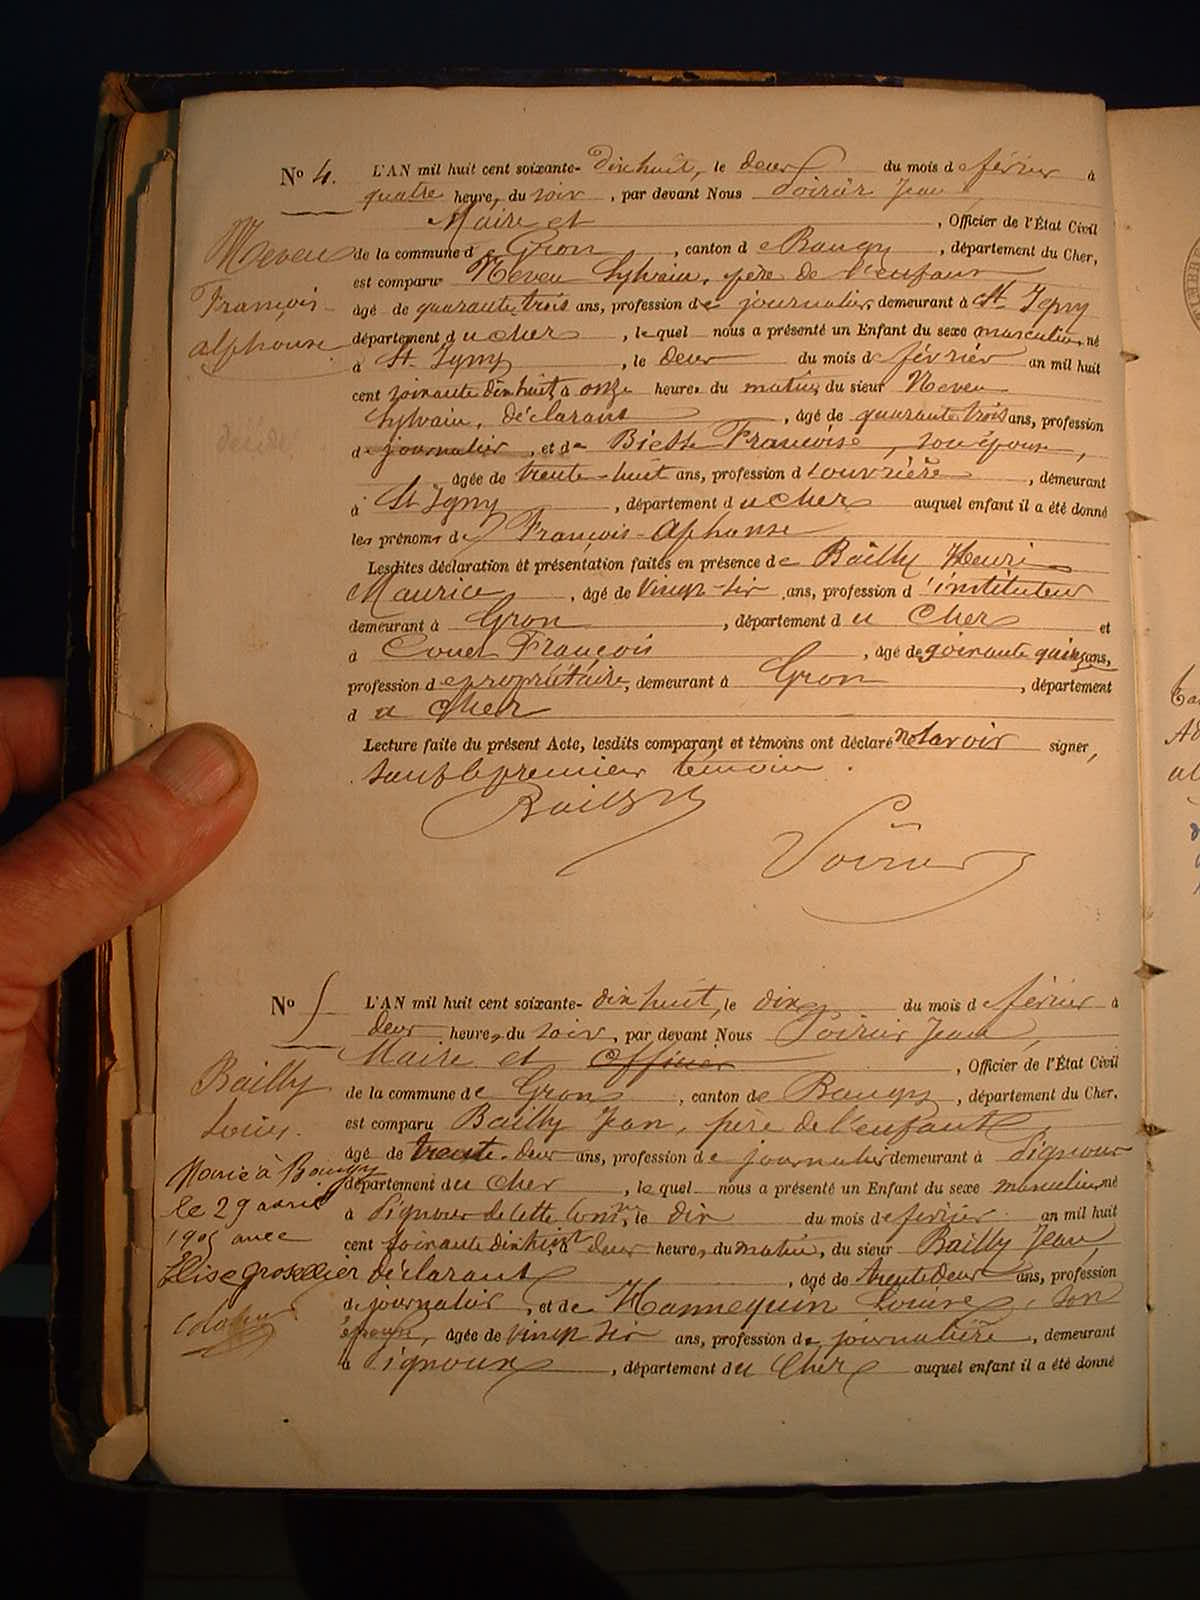 N° 4. L'AN mil huit cent soixante-dix huit, le deux du mois de février à
quatre heures du soir, par devant Nous Poirier Jean
Maire et , Officier de l'État Civil
Neveu
de la commune de Gron , canton de Baugy , département du Cher,
est comparu Neveu Sylvain, père de l'enfant
François
âgé de quarante trois ans, profession de journalier, demeurant à St Igny
Alphonse
département du Cher , lequel nous a présenté un Enfant du sexe masculin, né
à St Igny , le deux du mois de février an mil huit
cent soixante dix huit à onze heures du matin, du sieur Neveu
Sylvain, déclarant , âgé de quarante trois ans, profession
de journalier , et de Françoise, son épouse,
âgée de trente-huit ans, profession d'ouvrière , demeurant
à St Igny , département du Cher auquel enfant il a été donné
les prénoms de François-Alphonse
Lesdites déclaration et présentation faites en présence de Bailly Henri
Maurice , âgé de vingt-six ans, profession d'instituteur
demeurant à Gron , département du Cher et
d François , âgé de soixante quinze ans,
profession de propriétaire, demeurant à Gron , département
du Cher
Lecture faite du présent Acte, lesdits comparant et témoins ont déclaré ne savoir signer,
sauf le premier témoin.
Bailly
Poirier
N° 5 L'AN mil huit cent soixante-dix huit, le dix du mois de février à
deux heures du soir, par devant Nous Poirier Jean,
Maire et Officier , Officier de l'État Civil
Bailly
de la commune de Gron , canton de Baugy , département du Cher,
Louis.
est comparu Bailly Jean, père de l'enfant
âgé de trente-deux ans, profession de journalier demeurant à Signoux
Marié à Baugy
département du Cher , lequel nous a présenté un Enfant du sexe masculin, né
le 29 avril
à Signoux de cette comne, le dix du mois de février an mil huit
1905 avec
cent soixante dix huit, à deux heures du matin, du sieur Bailly Jean,
Elise Grosellier
déclarant , âgé de trente deux ans, profession
de journalier , et de Hannequin Louise, son
épouse, âgée de vingt six ans, profession de journalière , demeurant
à Signoux , département du Cher auquel enfant il a été donné